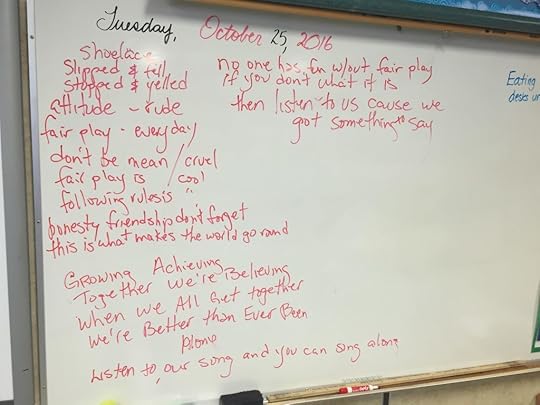 Tuesday, October 25, 2016
Shoelace
Slipped & fell
Stopped & yelled
attitude - rude
fair play - everyday
don't be mean / cruel
fair play is / cool
following rules is "
honesty friendship don't forget
this is what makes the world go round
Growing Achieving
Together We're Believing
When we All Get together
We're Better than Ever Been
Alone
Listen to our song and you can sing along
no one has fun w/out fair play
if you don't what it is
then listen to us cause we
got something to say
Eating
desks